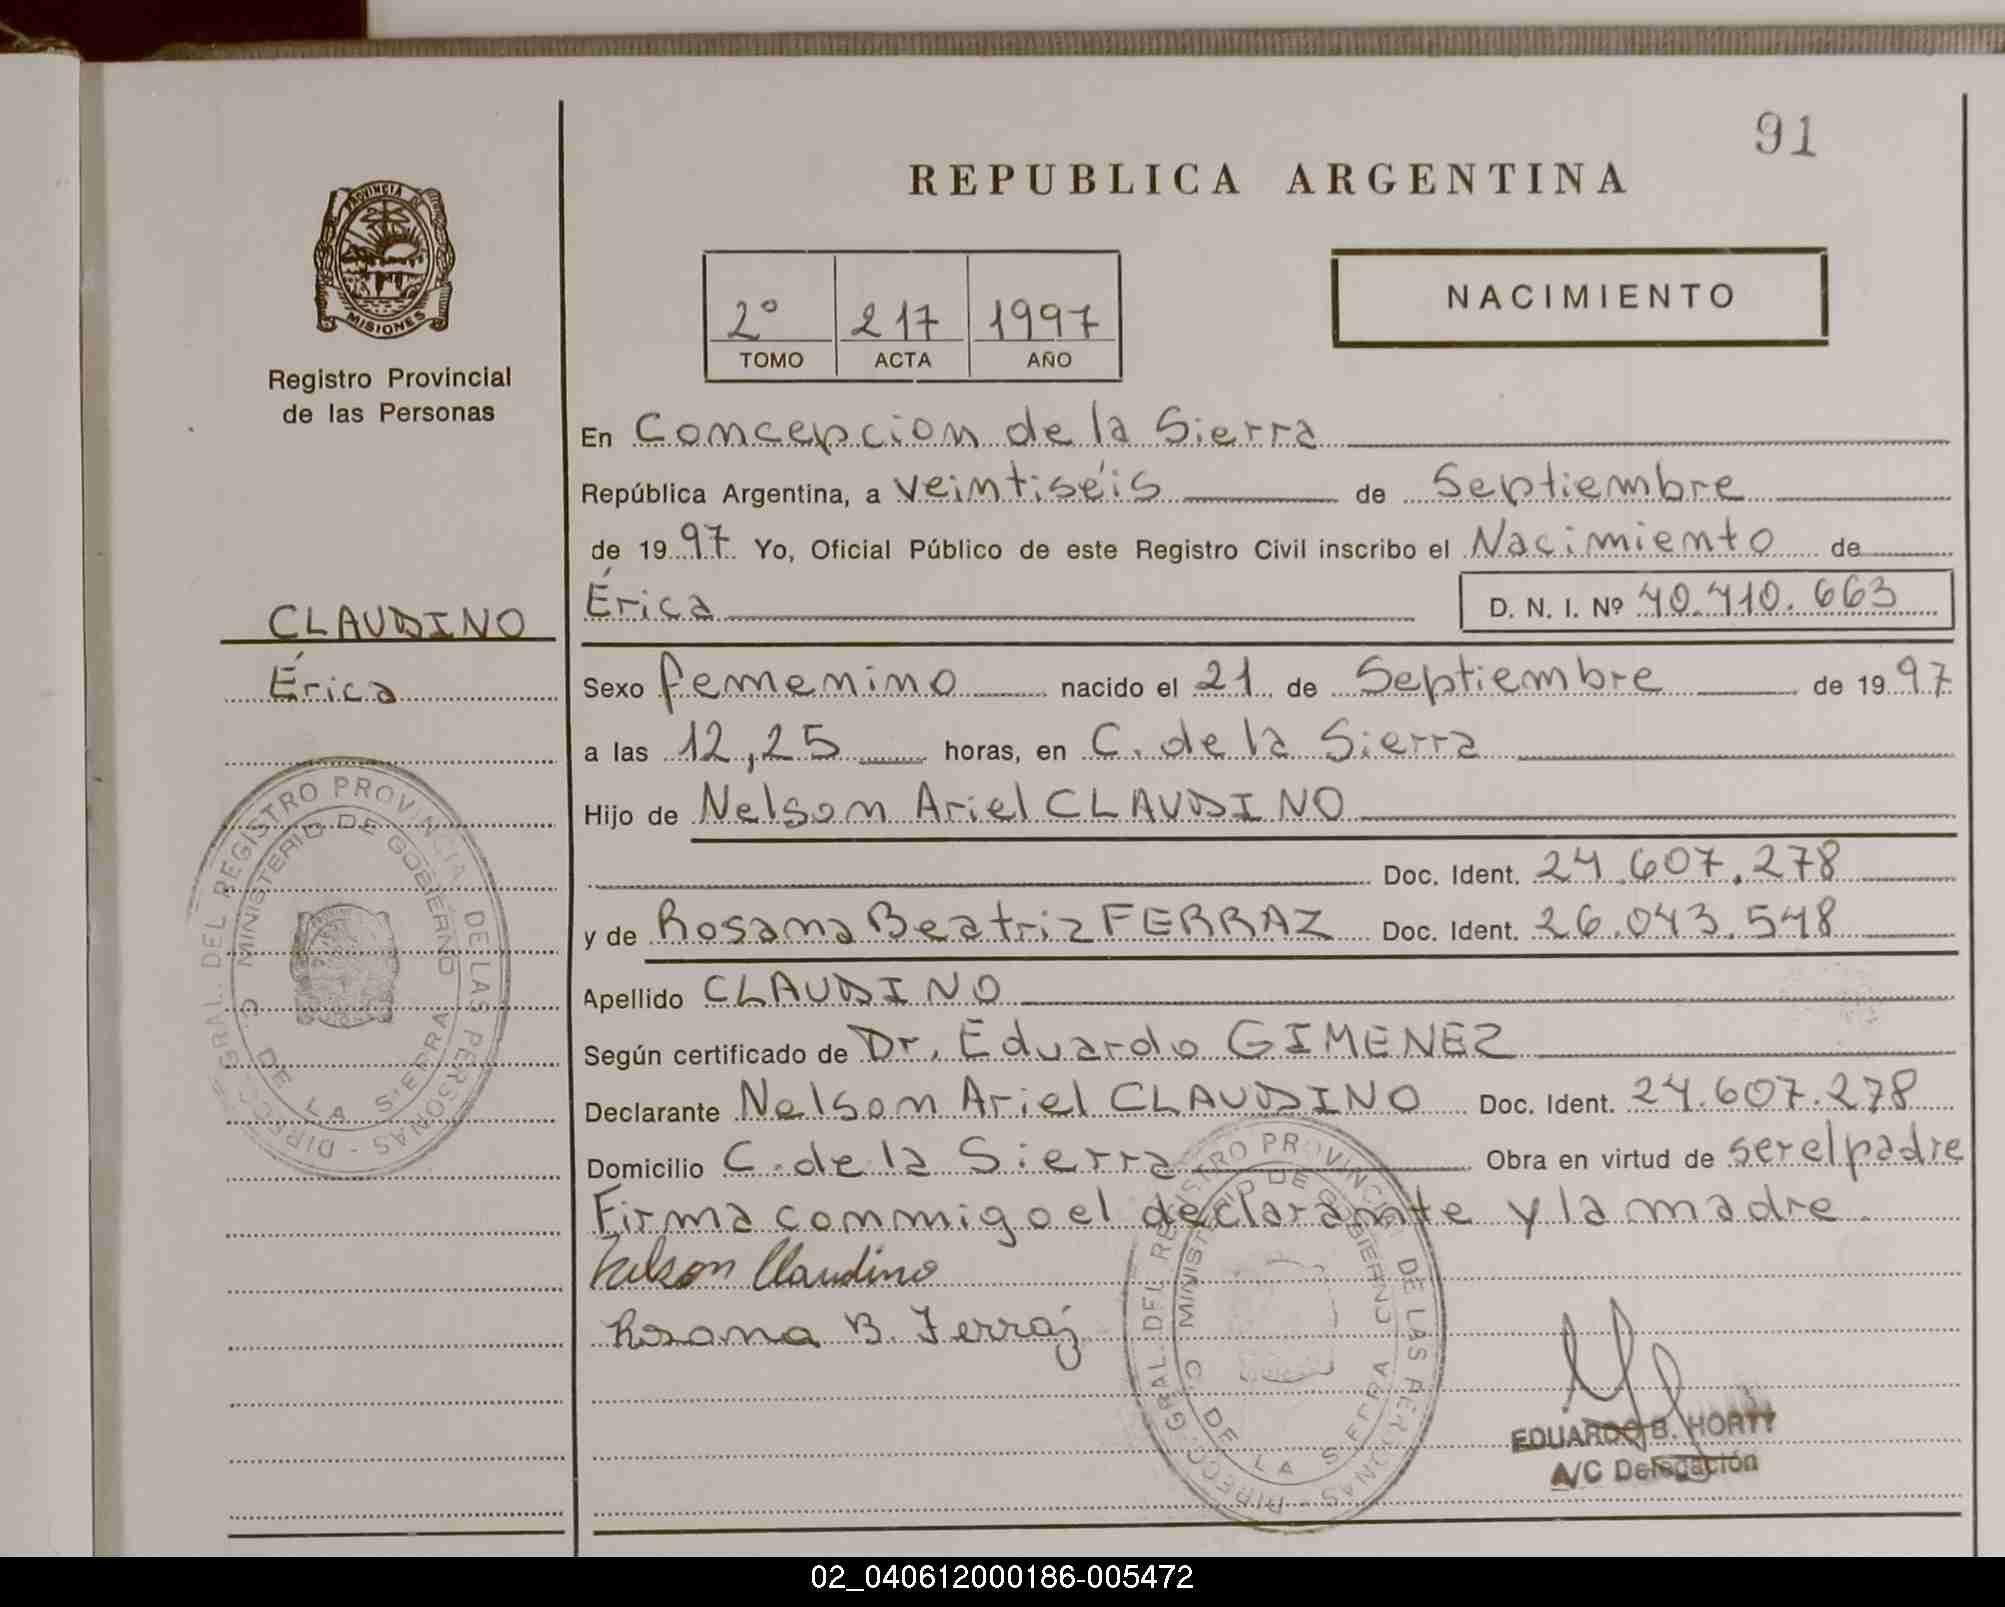 91
REPUBLICA ARGENTINA
PROVINCIA DE
MISIONES
Registro Provincial
de las Personas
2º 217 1997
TOMO ACTA AÑO
NACIMIENTO
En Concepcion de la Sierra
República Argentina, a veintiséis de Septiembre
de 1997 Yo, Oficial Público de este Registro Civil inscribo el Nacimiento de
Érica D. N. I. Nº 40.410.663
CLAUDINO
Érica
Sexo femenino nacido el 21 de Septiembre de 1997
a las 12,25 horas, en C. de la Sierra
Hijo de Nelson Ariel CLAUDINO
Doc. Ident. 24.607.278
y de Rosana Beatriz FERRAZ Doc. Ident. 26.043.548
Apellido CLAUDINO
Según certificado de Dr. Eduardo GIMENEZ
Declarante Nelson Ariel CLAUDINO Doc. Ident. 24.607.278
Domicilio C. de la Sierra Obra en virtud de ser el padre
Firma commigo el declarante y la madre
Nelson Claudino
Rosana B. Ferraz
DIRECC. GRAL. DEL REGISTRO PROVINCIAL DE LAS PERSONAS
MINISTERIO DE GOBIERNO
C. DE LA SIERRA
DIRECC. GRAL. DEL REGISTRO PROVINCIAL DE LAS PERSONAS
MINISTERIO DE GOBIERNO
C. DE LA SIERRA
EDUARDO B. HORTY
A/C Delegación
02_040612000186-005472